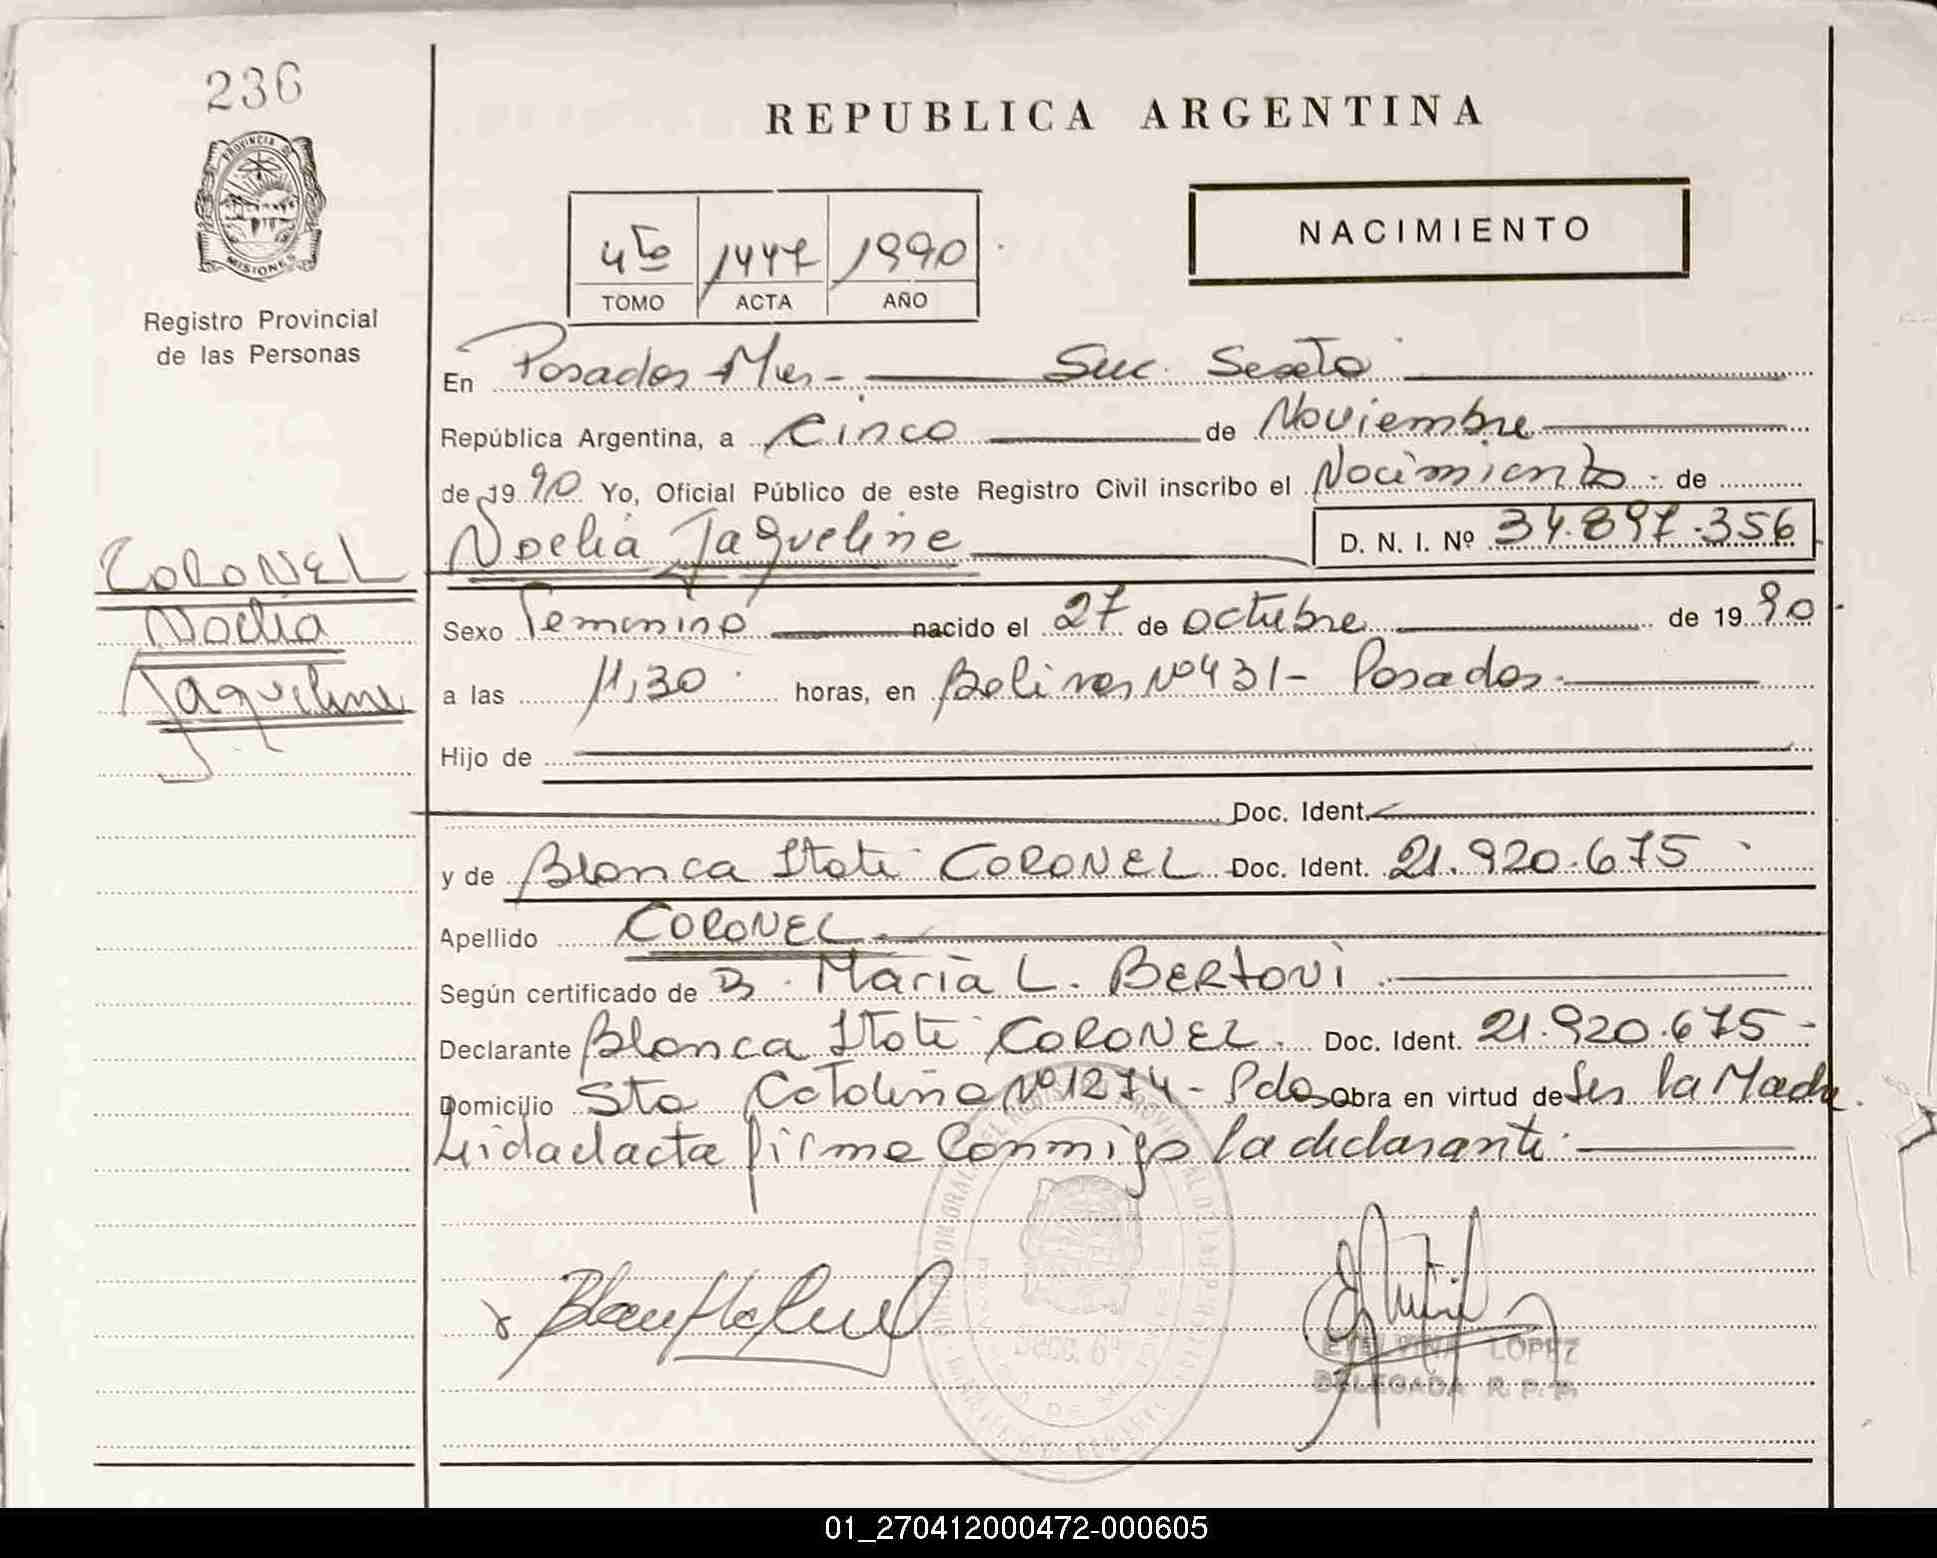 236
REPUBLICA ARGENTINA
PROVINCIA DE
MISIONES
Registro Provincial
de las Personas
4to 1447 1990
TOMO ACTA AÑO
NACIMIENTO
En Posadas Mnes- Suc. Sexta
República Argentina, a Cinco de Noviembre
de 1990 Yo, Oficial Público de este Registro Civil inscribo el Nacimiento de
Noelia Jaqueline D. N. I. Nº 34.897.356
CORONEL
Noelia
Jaqueline
Sexo Femenino nacido el 27 de octubre de 1990
a las 11,30 horas, en Bolivar Nº 431- Posadas
Hijo de
Doc. Ident.
y de Blanca Itati CORONEL Doc. Ident. 21.920.675
Apellido CORONEL
Según certificado de María L. BERTONI
Declarante Blanca Itati CORONEL. Doc. Ident. 21.920.675-
Domicilio Sta Catalina Nº 1274- Pdas Obra en virtud de Ser la Madre.
Leida el acta firma conmigo la declarante
LOPEZ
DELEGADA R. P. P.
01_270412000472-000605